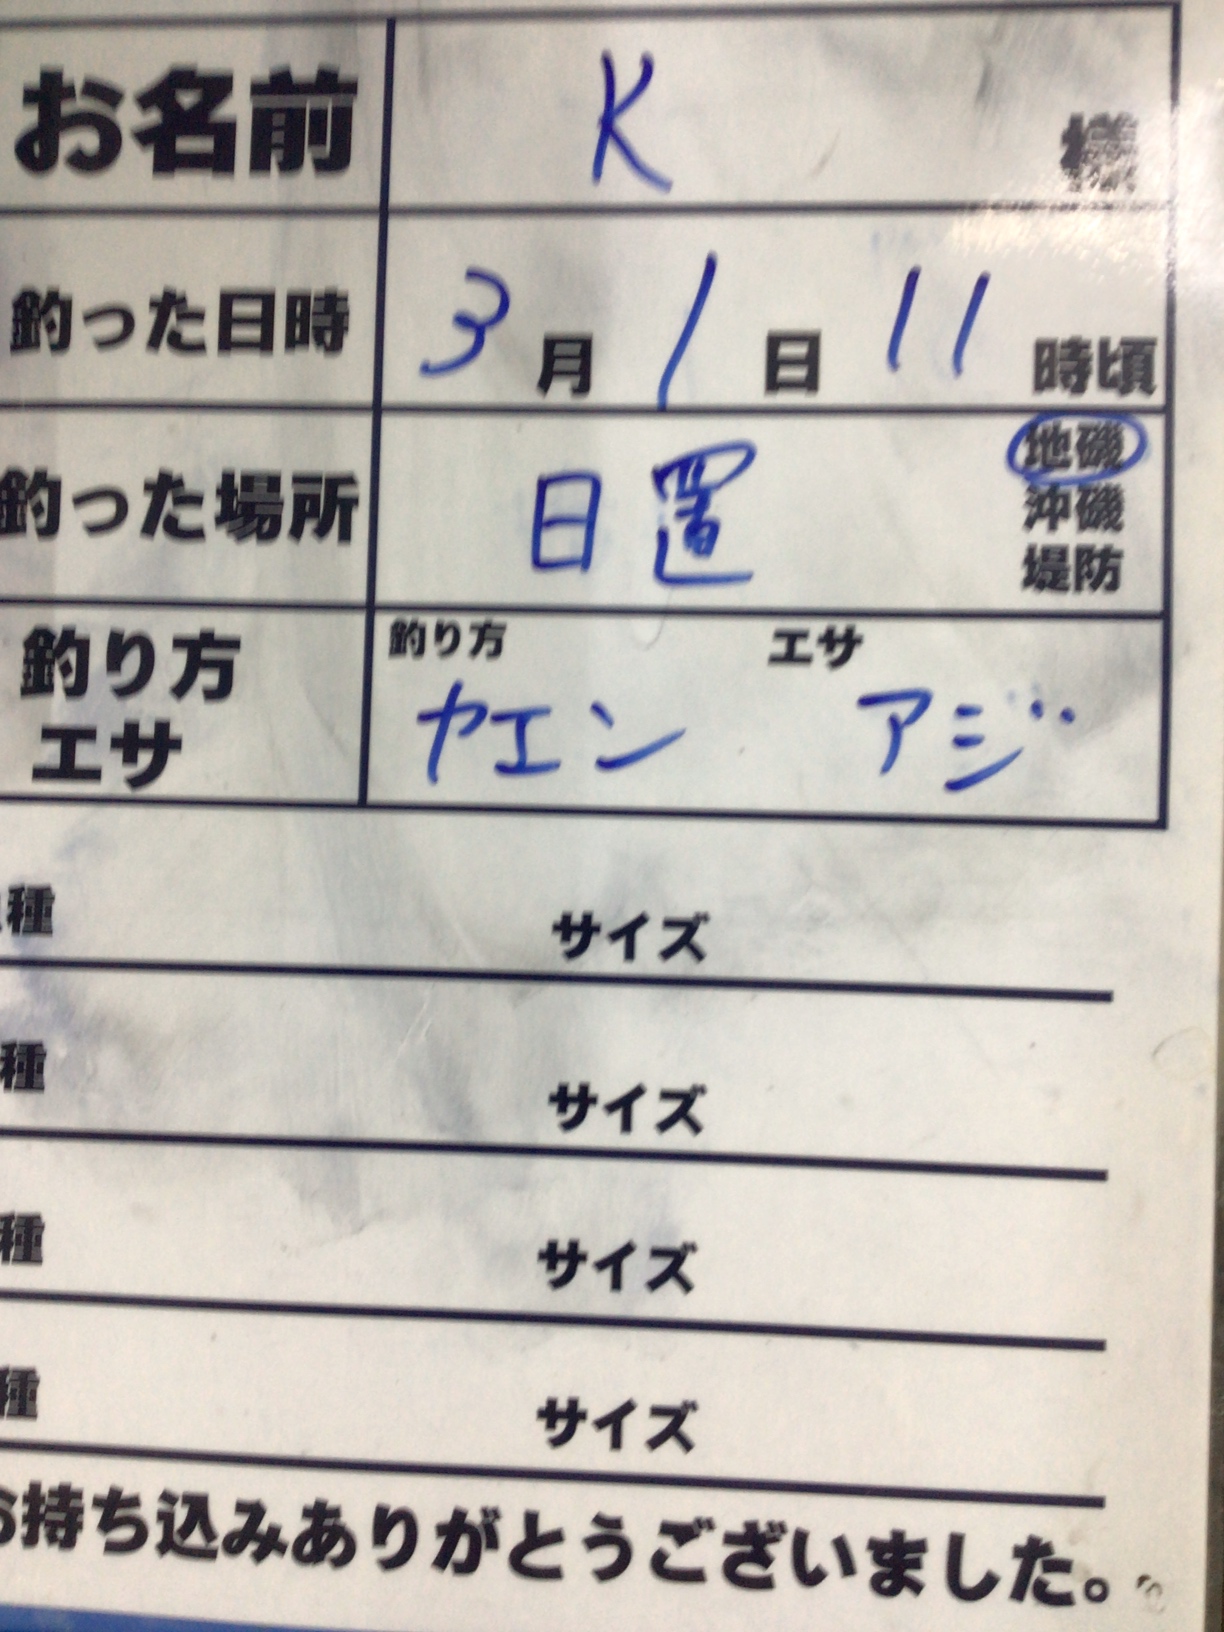 お名前 K 様
釣った日時 3月1日11時頃
釣った場所 日置 地磯
沖磯
堤防
釣り方 エサ
釣り方 ヤエン
エサ アジ
種 サイズ
種 サイズ
種 サイズ
種 サイズ
お持ち込みありがとうございました。